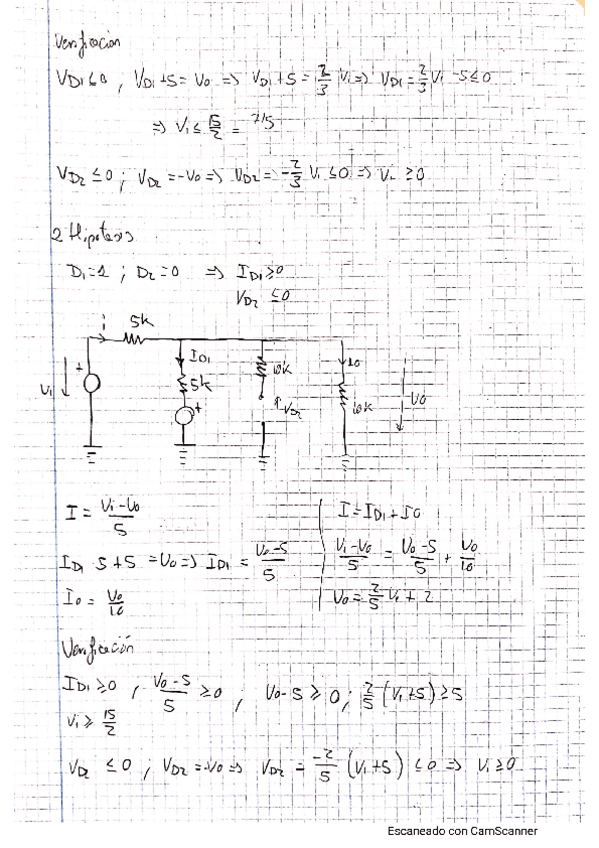 Verificación
VD1 ≤ 0 , VD1 + 5 = Vo => VD1 + 5 = 2/3 Vi => VD1 = 2/3 Vi - 5 ≤ 0
=> Vi ≤ 15/2 = 7'5
VD2 ≤ 0 ; VD2 = -Vo => VD2 = -2/3 Vi ≤ 0 => Vi ≥ 0
2 Hipotesis
D1=1 ; D2=0 => ID1 ≥ 0
VD2 ≤ 0
i 5k
ID1 10k Io
Vi + 5k VD2 10k Vo
+
I = (Vi - Vo)/5
I = ID1 + IO
ID1 5 + 5 = Vo => ID1 = (Vo - 5)/5
(Vi - Vo)/5 = (Vo - 5)/5 + Vo/10
Io = Vo/10
Vo = 2/5 Vi + 2
Verificación
ID1 ≥ 0 , (Vo - 5)/5 ≥ 0 , Vo - 5 ≥ 0 ; 2/5 (Vi + 5) ≥ 5
Vi ≥ 15/2
VD2 ≤ 0 , VD2 = -Vo => VD2 = -2/5 (Vi + 5) ≤ 0 => Vi ≥ 0
Escaneado con CamScanner